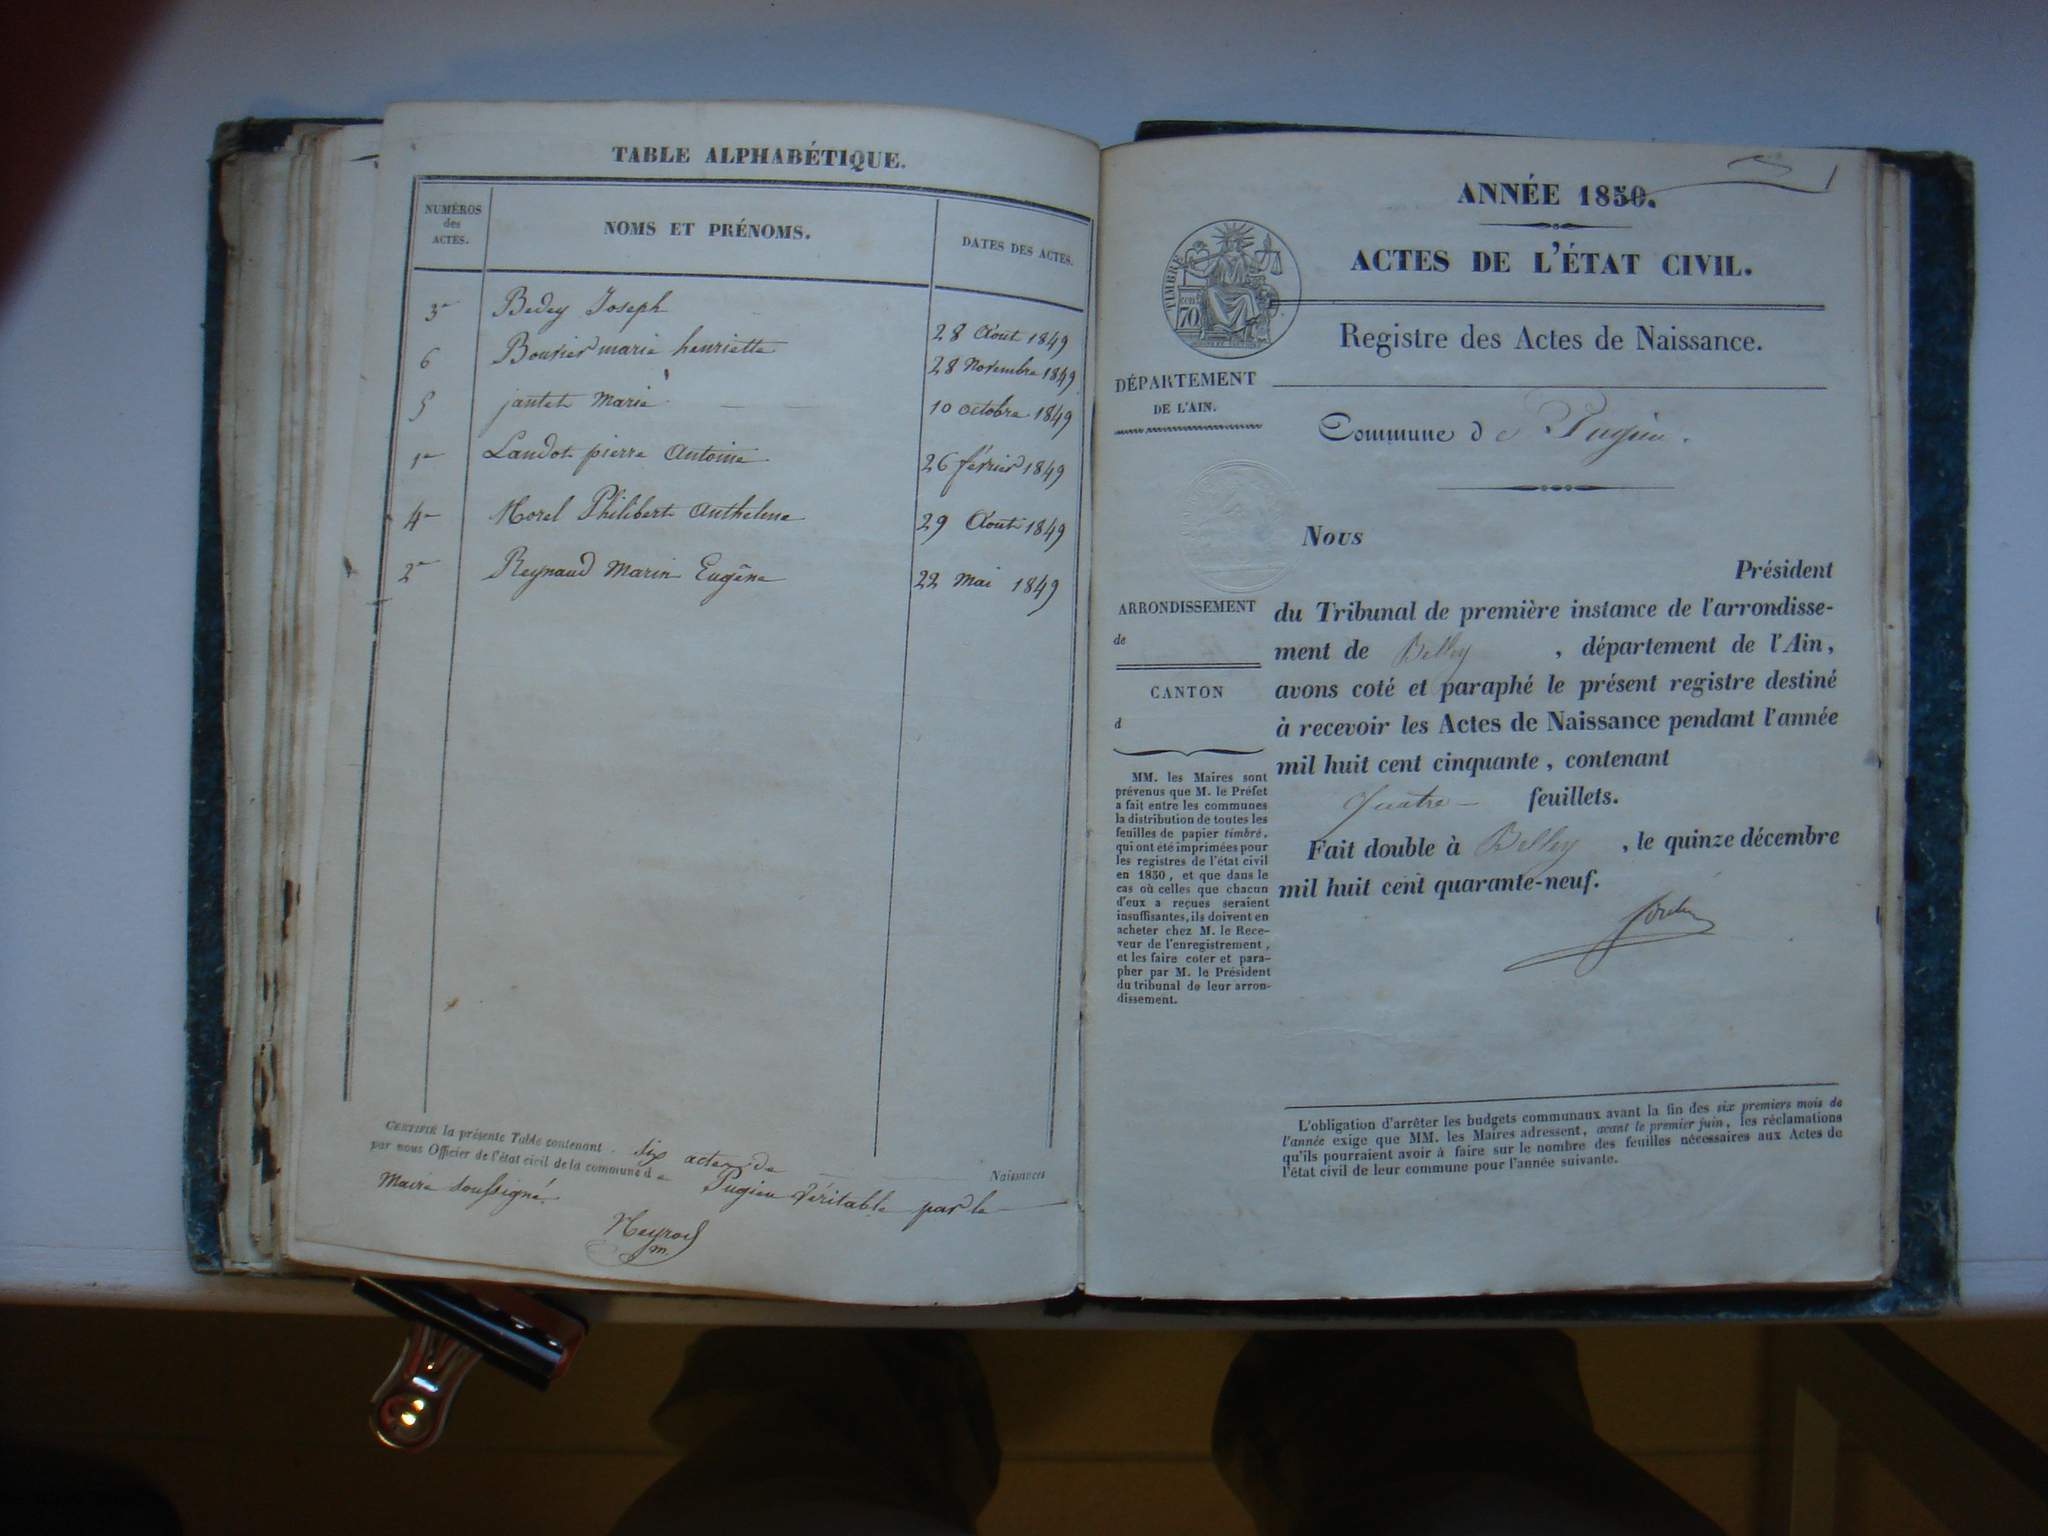 TABLE ALPHABÉTIQUE.
NUMÉROS des ACTES.
NOMS ET PRÉNOMS.
DATES DES ACTES.
3 Bedey Joseph 28 Aout 1849
6 Bouvier marie henriette 28 Novembre 1849
5 jantet Marie 10 octobre 1849
1 Landot pierre Antoine 26 février 1849
4 Morel Philibert Anthelme 29 Aout 1849
2 Reynaud Marin Eugène 22 Mai 1849
CERTIFIÉ la présente Table contenant six actes de Naissances
par nous Officier de l'état civil de la commune de Pugieu Véritable par le
Maire soussigné
ANNÉE 1850.
ACTES DE L'ÉTAT CIVIL.
TIMBRE
cent
70
Registre des Actes de Naissance.
DÉPARTEMENT
DE L'AIN.
Commune de Pugieu.
Nous
Président
du Tribunal de première instance de l'arrondisse-
ment de Belley, département de l'Ain,
avons coté et paraphé le présent registre destiné
à recevoir les Actes de Naissance pendant l'année
mil huit cent cinquante, contenant
quatre feuillets.
Fait double à Belley, le quinze décembre
mil huit cent quarante-neuf.
ARRONDISSEMENT
de
CANTON
d
MM. les Maires sont
prévenus que M. le Préfet
a fait entre les communes
la distribution de toutes les
feuilles de papier timbré,
qui ont été imprimées pour
les registres de l'état civil
en 1850, et que dans le
cas où celles que chacun
d'eux a reçues seraient
insuffisantes, ils doivent en
acheter chez M. le Rece-
veur de l'enregistrement,
et les faire coter et para-
pher par M. le Président
du tribunal de leur arron-
dissement.
L'obligation d'arrêter les budgets communaux avant la fin des six premiers mois de
l'année exige que MM. les Maires adressent, avant le premier juin, les réclamations
qu'ils pourraient avoir à faire sur le nombre des feuilles nécessaires aux Actes de
l'état civil de leur commune pour l'année suivante.